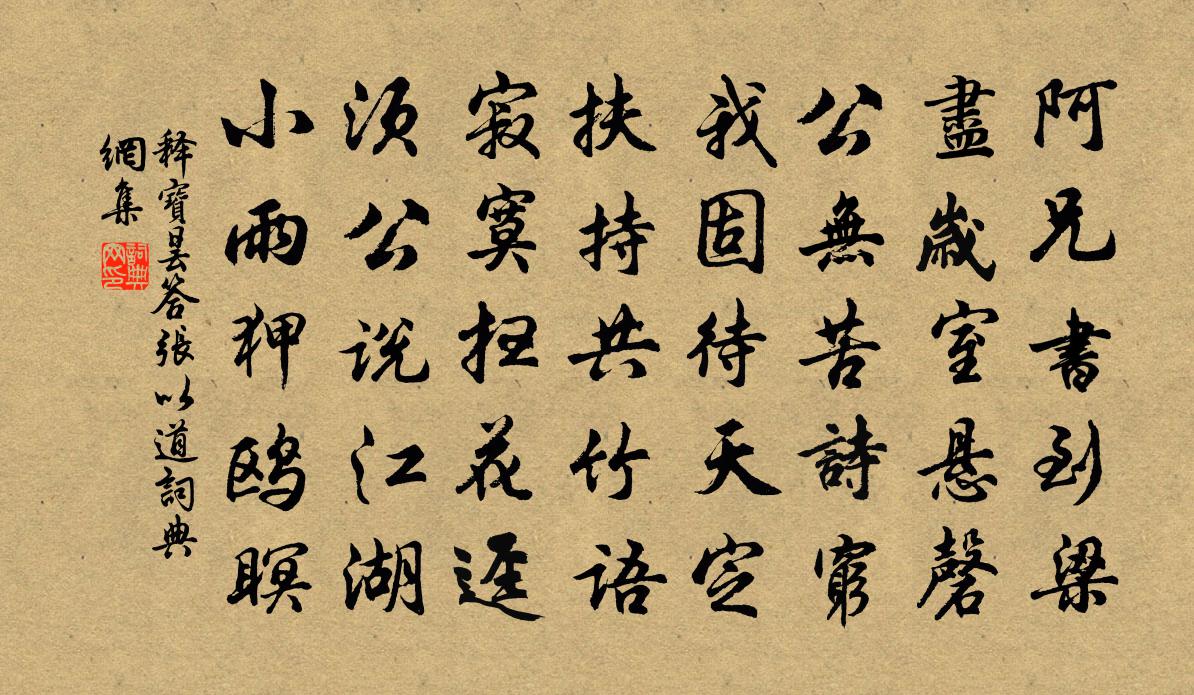 阿兄書到梁
盡歲室懸磬
公無苦詩窮
我固待天定
扶持共竹語
寂寞扫花逕
須公説江湖
小雨狎鸥暝
释寶昙答張以道詞典
網集
詞典网印